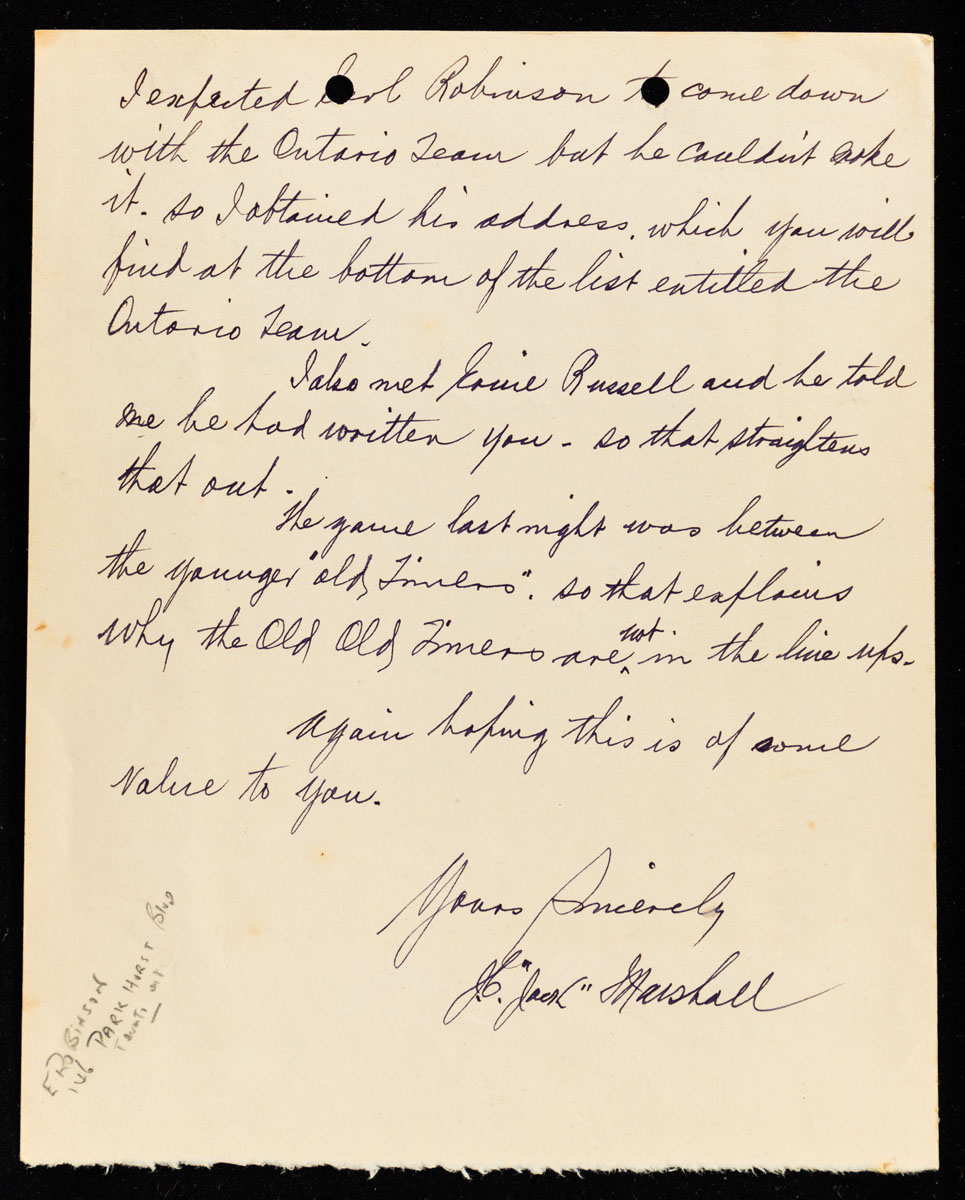 I expected Earl Robinson to come down
with the Ontario Team but he couldn't make
it. so I obtained his address. which you will
find at the bottom of the list entitled the
Ontario Team.
I also met Ernie Russell and he told
me he had written you - so that straightens
that out.
The game last night was between
the younger "old, Timers". so that explains
why the Old, Old, Timers are not in the line ups.
Again hoping this is of some
value to you.
Yours Sincerely
"Jack" Marshall
E ROBINSON
146 PARK HURST Blvd